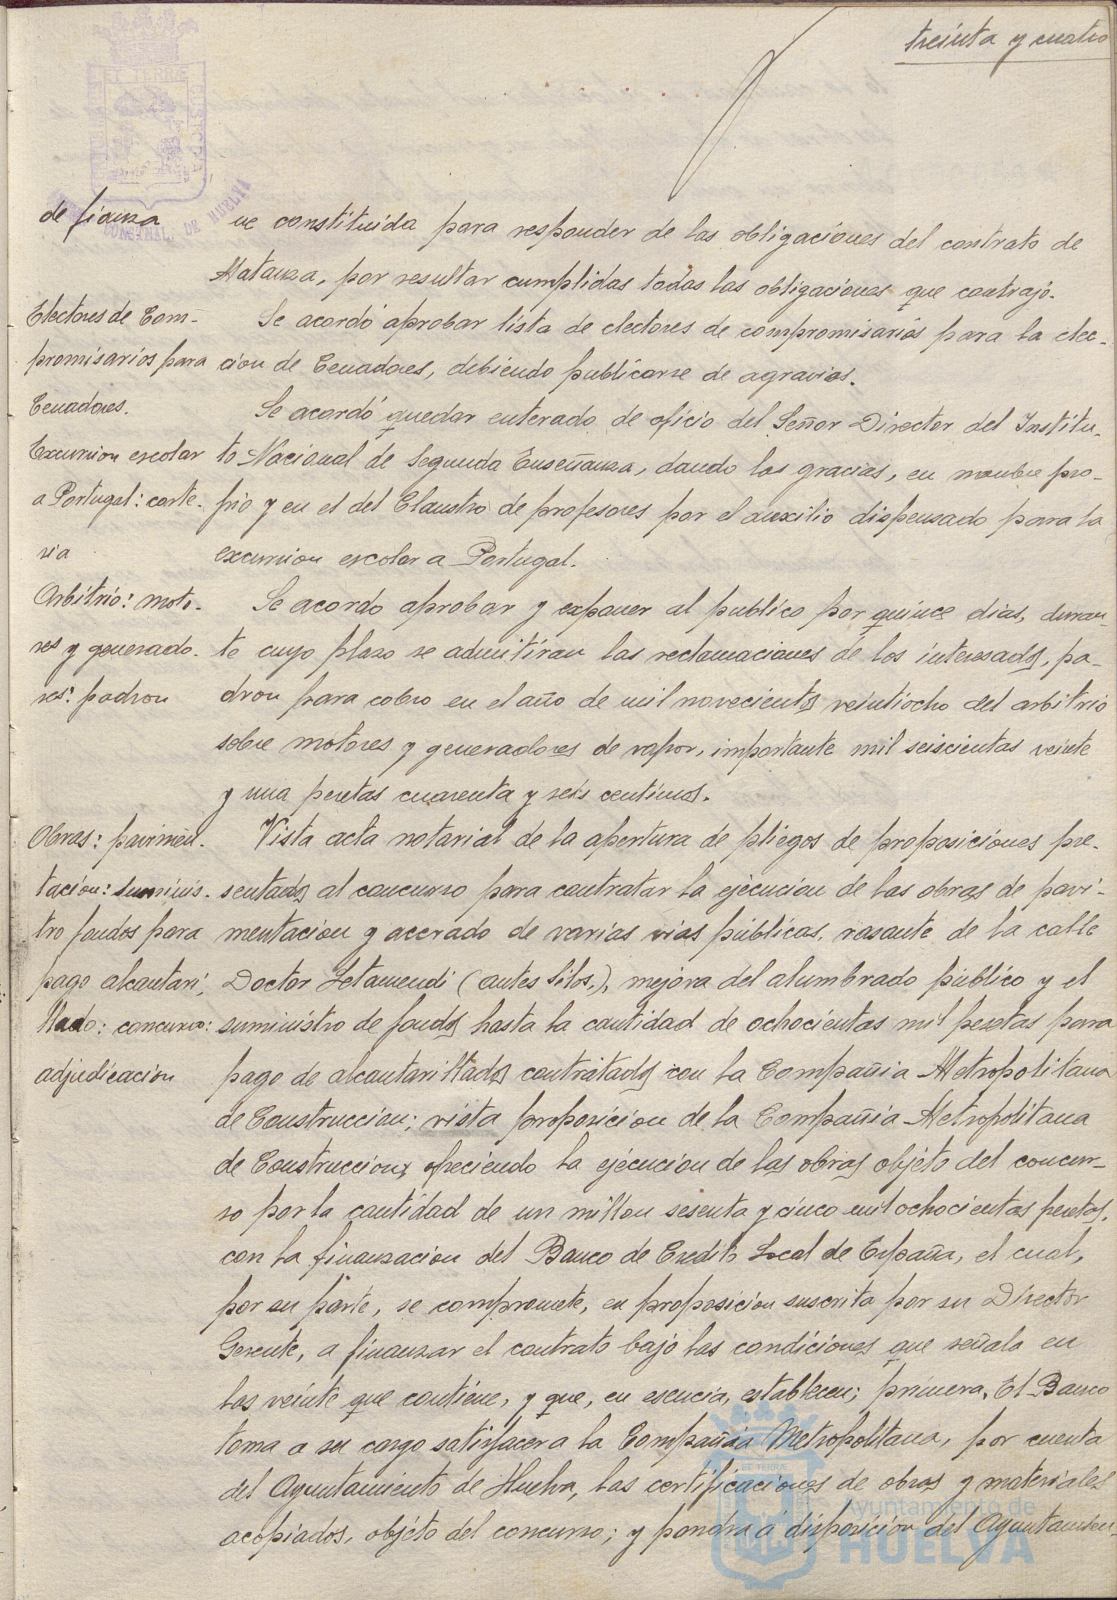 treinta y cuatro
de fianza
ne constituida para responder de las obligaciones del contrato de
Matanza, por resultar cumplidas todas las obligaciones que contrajo.
Electores de Com-
promisarios para
Cenadores.
Se acordó aprobar lista de electores de compromisarios para la elec-
cion de Cenadores, debiendo publicarse de agravios.
Excursion escolar
a Portugal: corte-
sia
Se acordó quedar enterado de oficio del Señor Director del Institu-
to Nacional de Segunda Enseñanza, dando las gracias, en nombre pro-
pio y en el del Claustro de profesores por el auxilio dispensado para la
excursion escolar a Portugal.
Arbitrio: moto-
res y generado-
res: padron
Se acordo aprobar y exponer al publico por quince dias, duran-
te cuyo plazo se admitiran las reclamaciones de los interesados, pa-
dron para cobro en el año de mil novecientos veintiocho del arbitrio
sobre motores y generadores de vapor, importante mil seiscientas veinte
y una pesetas cuarenta y seis centimos.
Obras: pavimen-
tacion: suminis-
tro fondos para
pago alcantari-
llado: concurso:
adjudicacion
Vista acta notarial de la apertura de pliegos de proposiciones pre-
sentados al concurso para contratar la ejecucion de las obras de pavi-
mentacion y acerado de varias vias públicas, rasante de la calle
Doctor Letamendi (antes Silos), mejora del alumbrado público y el
suministro de fondos hasta la cantidad de ochocientas mil pesetas para
pago de alcantarillados contratados con la Compañia Metropolitana
de Construccion; vista proposicion de la Compañia Metropolitana
de Construccion, ofreciendo la ejecucion de las obras objeto del concur-
so por la cantidad de un millon sesenta y cinco mil ochocientas pesetas,
con la finanzacion del Banco de Credito Local de España, el cual,
por su parte, se compromete, en proposicion suscrita por su Director
Gerente, a finanzar el contrato bajo las condiciones que señala en
las veinte que contiene, y que, en esencia, establecen; primera, El Banco
toma a su cargo satisfacer a la Compañia Metropolitana, por cuenta
del Ayuntamiento de Huelva, las certificaciones de obras y materiales
acopiados, objeto del concurso; y pondra a disposicion del Ayuntamien-
Ayuntamiento de
HUELVA